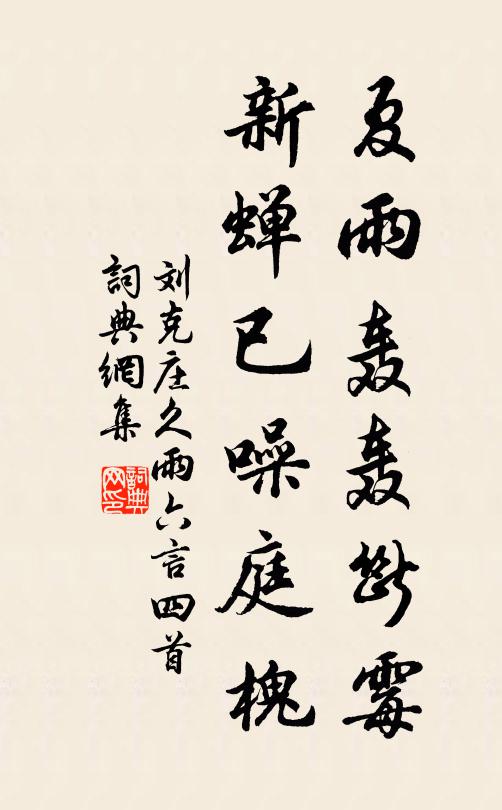 夏雨轰轰斷霉
新蝉已噪庭槐
刘克庄久雨六言四首
詞典網集
詞典网印